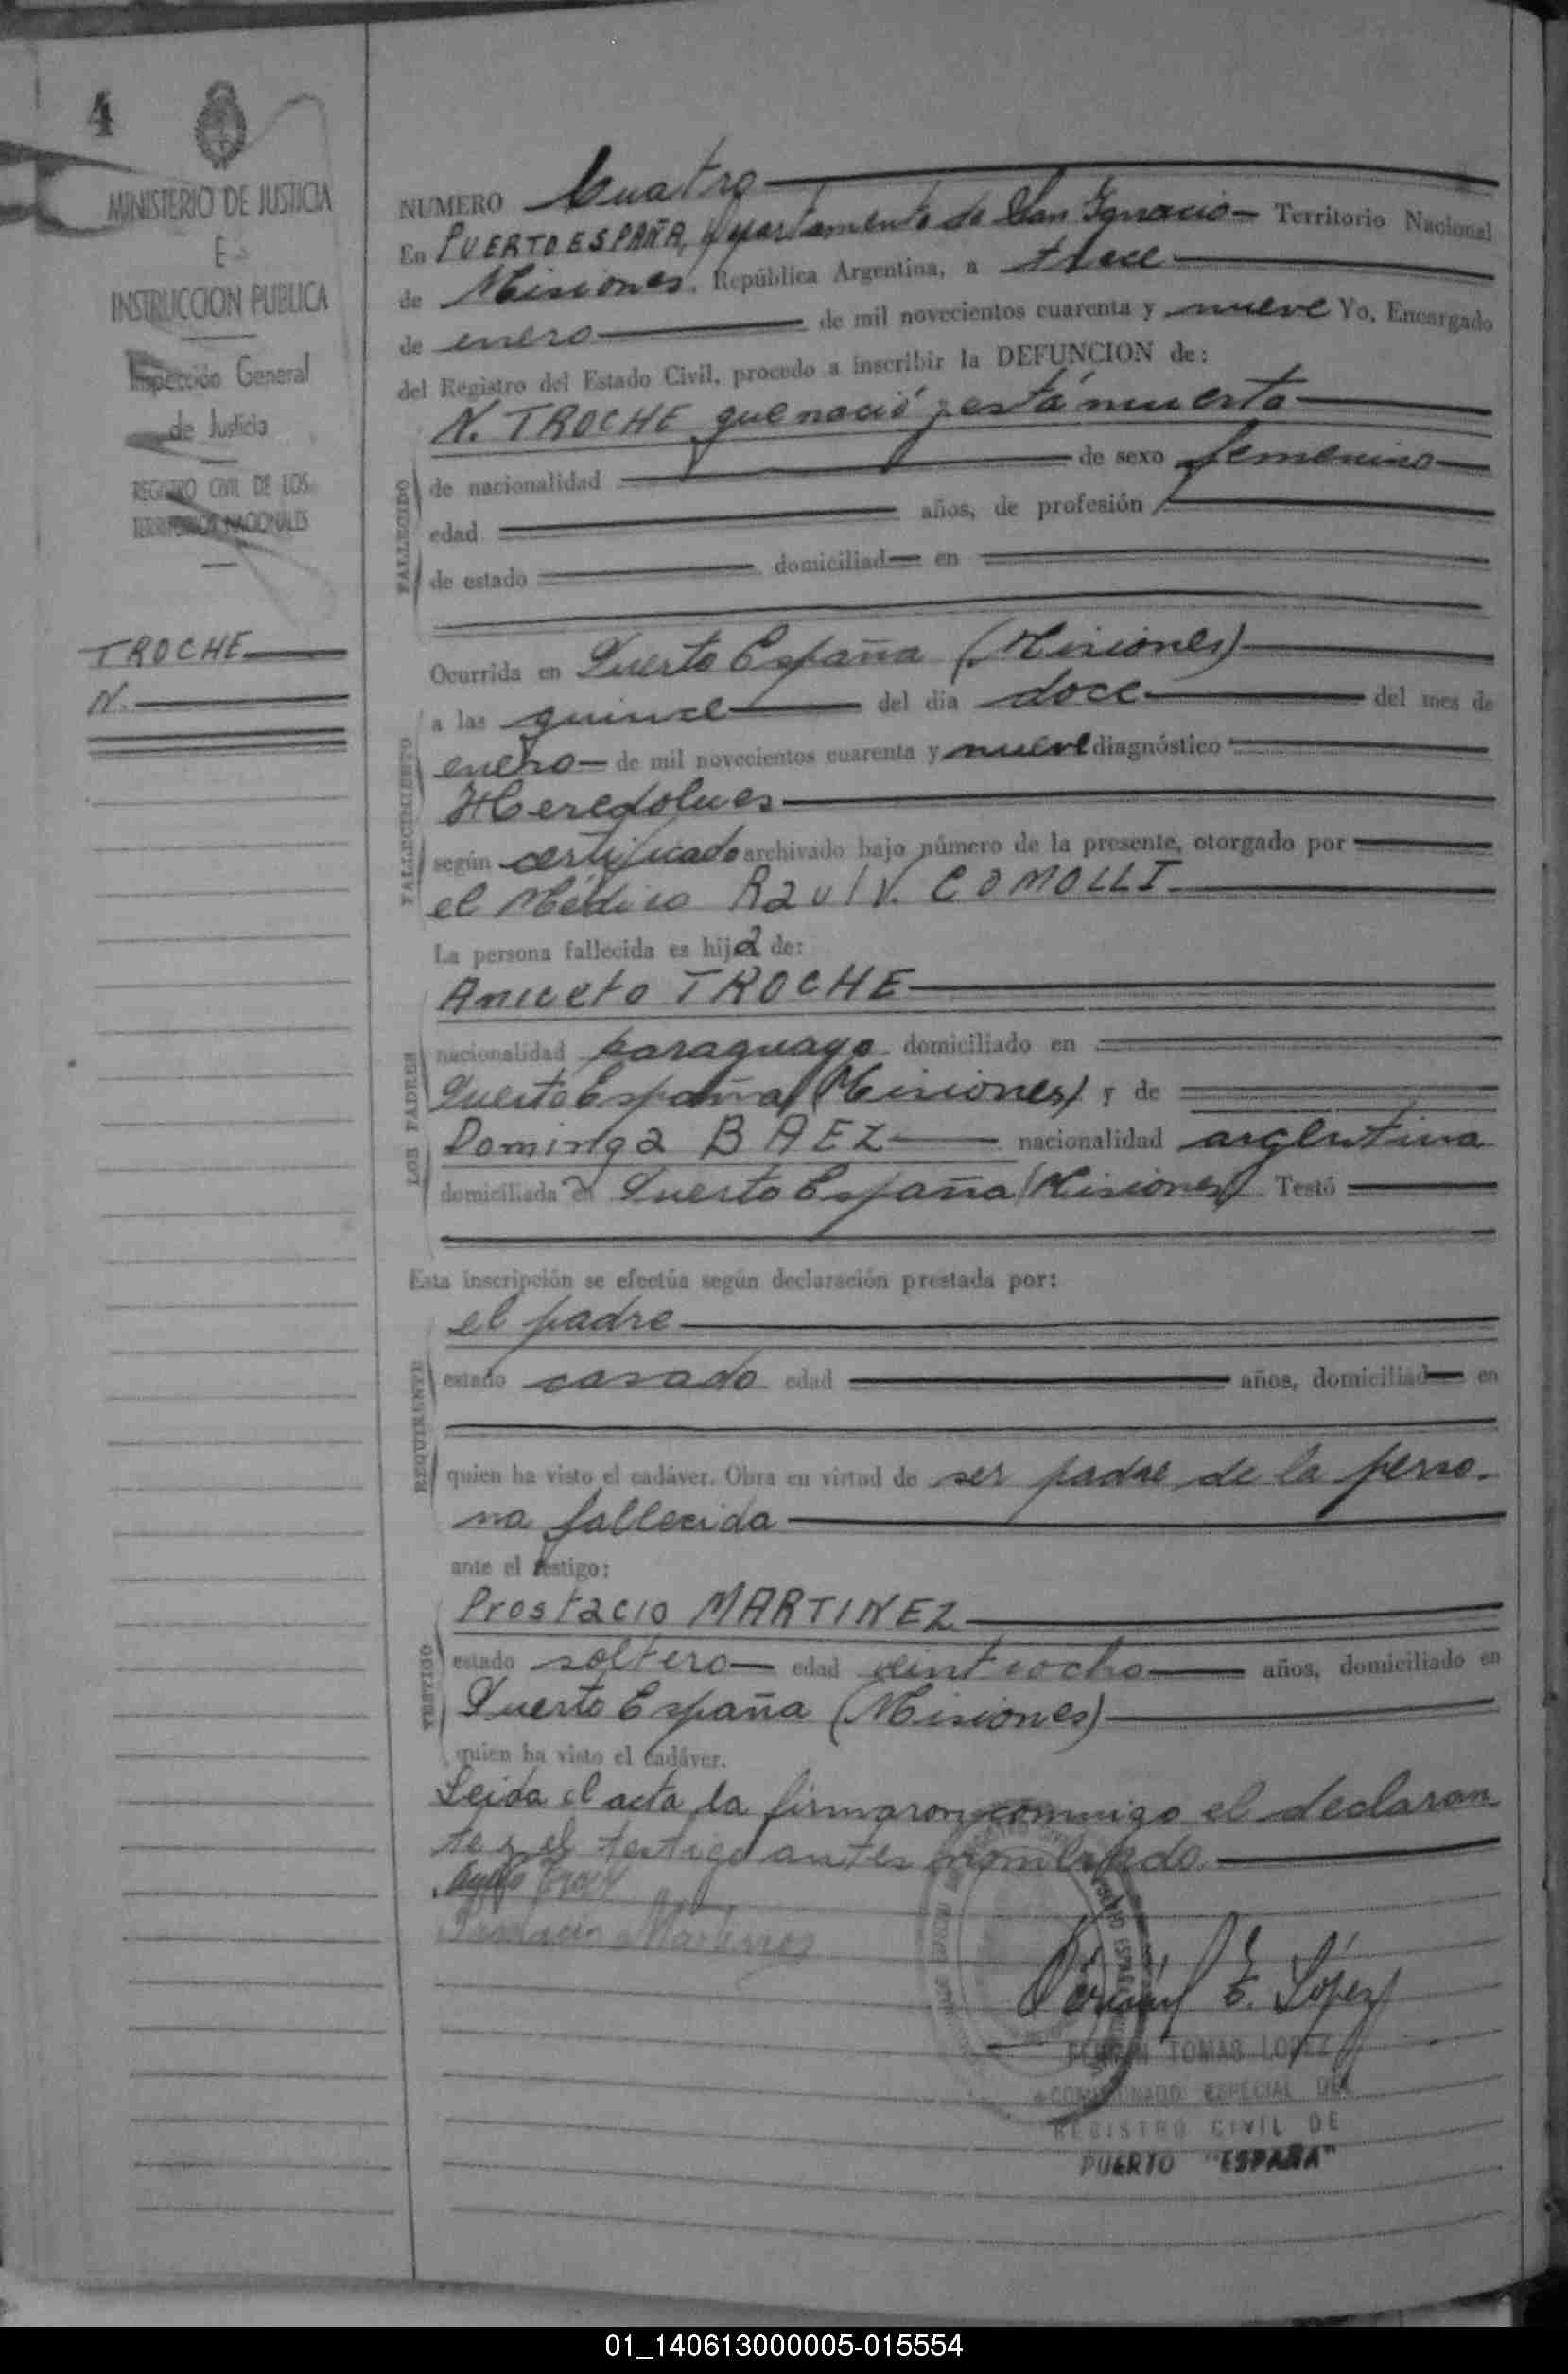 4
MINISTERIO DE JUSTICIA
E
INSTRUCCION PUBLICA
Inspección General
de Justicia
REGISTRO CIVIL DE LOS
TERRITORIOS NACIONALES
TROCHE
N.
NUMERO Cuatro
En PUERTO ESPAÑA, Departamento de San Ignacio Territorio Nacional
de Misiones, República Argentina, a trece
de enero de mil novecientos cuarenta y nueve Yo, Encargado
del Registro del Estado Civil, procedo a inscribir la DEFUNCION de:
N. TROCHE que nació y está muerta
FALLECIDO
de nacionalidad de sexo femenino
edad años, de profesión
de estado domiciliad en
Ocurrida en Puerto España (Misiones)
FALLECIMIENTO
a las quince del día doce del mes de
enero de mil novecientos cuarenta y nueve diagnóstico
Heredolues
según certificado archivado bajo número de la presente, otorgado por
el Médico Raul V. COMOLLI
La persona fallecida es hija de:
LOS PADRES
Aniceto TROCHE
nacionalidad paraguayo domiciliado en
Puerto España (Misiones) y de
Dominga BAEZ nacionalidad argentina
domiciliada en Puerto España (Misiones) Testó
Esta inscripción se efectúa según declaración prestada por:
REQUIRENTE
el padre
estado casado edad años, domiciliad en
quien ha visto el cadáver. Obra en virtud de ser padre de la perso-
na fallecida
ante el testigo:
TESTIGO
Prostacio MARTINEZ
estado soltero edad veintiocho años, domiciliado en
Puerto España (Misiones)
quien ha visto el cadáver.
Leida el acta la firmaron conmigo el declaran
te y el testigo antes nombrado.
E. López
FERMIN TOMAS LOPEZ
COMISIONADO ESPECIAL DEL
REGISTRO CIVIL DE
PUERTO "ESPAÑA"
01_140613000005-015554